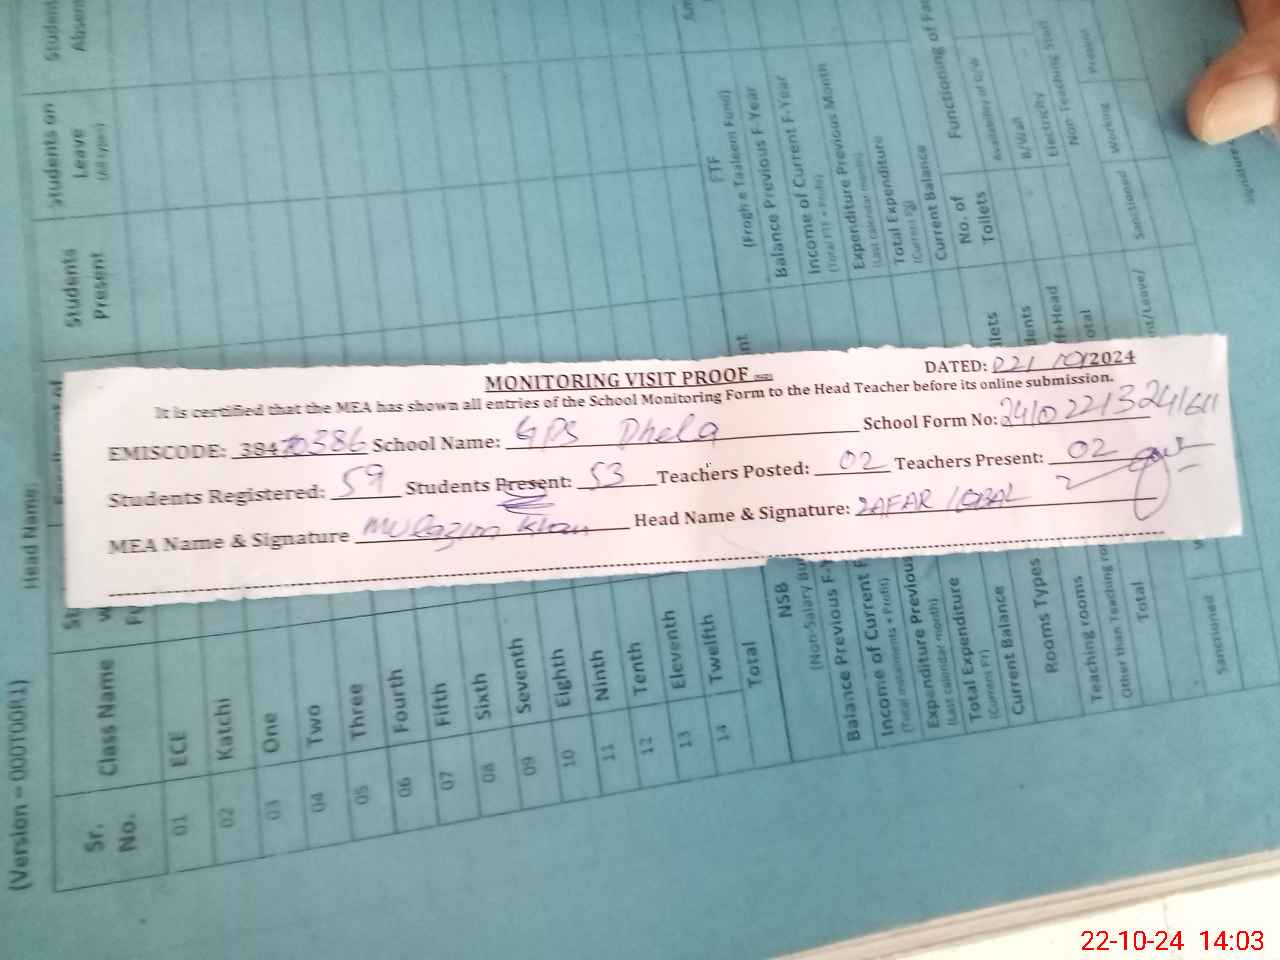 MONITORING VISIT PROOF
DATED: 22/10/2024
It is certified that the MEA has shown all entries of the School Monitoring Form to the Head Teacher before its online submission.
EMISCODE: 38470386 School Name: GPS Dhela School Form No:
Students Registered: 59 Students Present: 53 Teachers Posted: 02 Teachers Present: 02
MEA Name & Signature Mulazim Khan Head Name & Signature: ZAFAR IQBAL
(Version – 000T00R1)
Head Name:
Sr. No.
Class Name
Students Present
Students on Leave
(All types)
Student Absent
01 ECE
02 Katchi
03 One
04 Two
05 Three
06 Fourth
07 Fifth
08 Sixth
09 Seventh
10 Eighth
11 Ninth
12 Tenth
13 Eleventh
14 Twelfth
Total
NSB
(Non-Salary Bu
Balance Previous F-Y
Income of Current F
(Total instalments + Profit)
Expenditure Previous
(Last calendar month)
Total Expenditure
(Current FY)
Current Balance
Rooms Types
Teaching rooms
Other than Teaching ro
Total
Sanctioned
FTF
(Frogh e Taaleem Fund)
Balance Previous F-Year
Income of Current F-Year
(Total FTF + Profit)
Expenditure Previous Month
(Last calendar month)
Total Expenditure
(Current FY)
Current Balance
No. of Toilets
Functioning of Fa
Availability of D/W
B/Wall
Electricity
Non Teaching Staff
Sanctioned
Working
Present
22-10-24 14:03